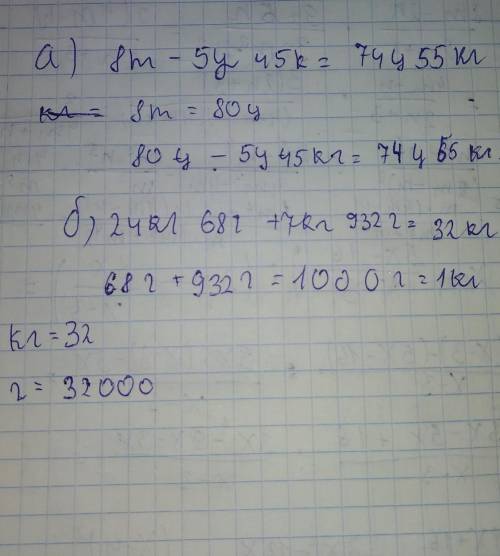 а) 8т - 5ц 45к = 74ц 55кг
кг = 8т = 80ц
80ц - 5ц 45кг = 74ц 55кг
б) 24кг 68г + 7кг 932г = 32кг
68г + 932г = 1000г = 1кг
кг = 32
г = 32000